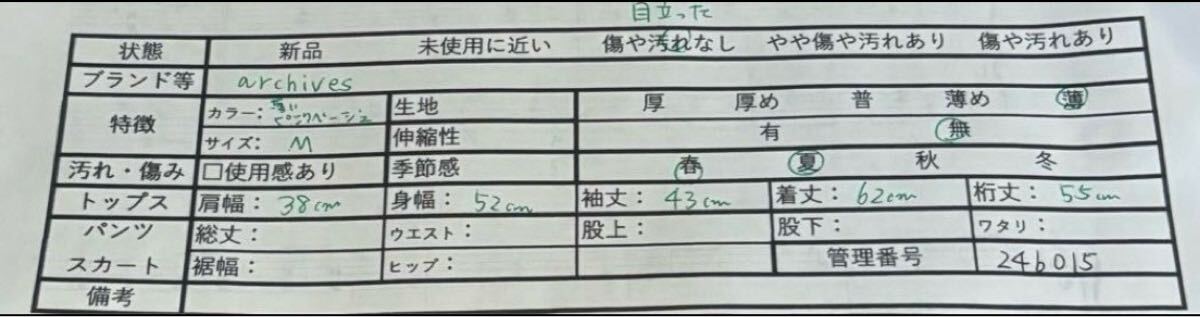 目立った
状態 新品 未使用に近い 傷や汚れなし やや傷や汚れあり 傷や汚れあり
ブランド等 archives
特徴 カラー：薄いピンクベージュ 生地 厚 厚め 普 薄め 薄
サイズ：M 伸縮性 有 無
汚れ・傷み □使用感あり 季節感 春 夏 秋 冬
トップス 肩幅：38cm 身幅：52cm 袖丈：43cm 着丈：62cm 裄丈：55cm
パンツ 総丈： ウエスト： 股上： 股下： ワタリ：
スカート 裾幅： ヒップ： 管理番号 246015
備考